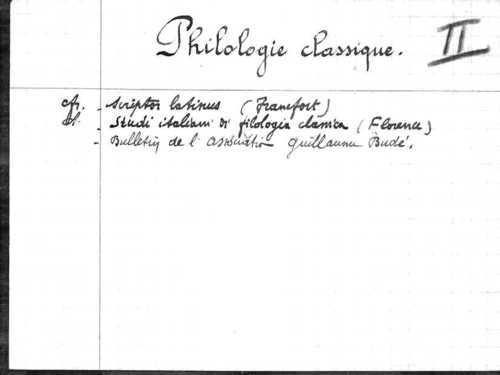 Philologie classique. II
cfr. - Scriptor latinus (Francfort)
id. - Studi italiani di filologia classica (Florence)
- Bulletin de l'association Guillaume Budé.